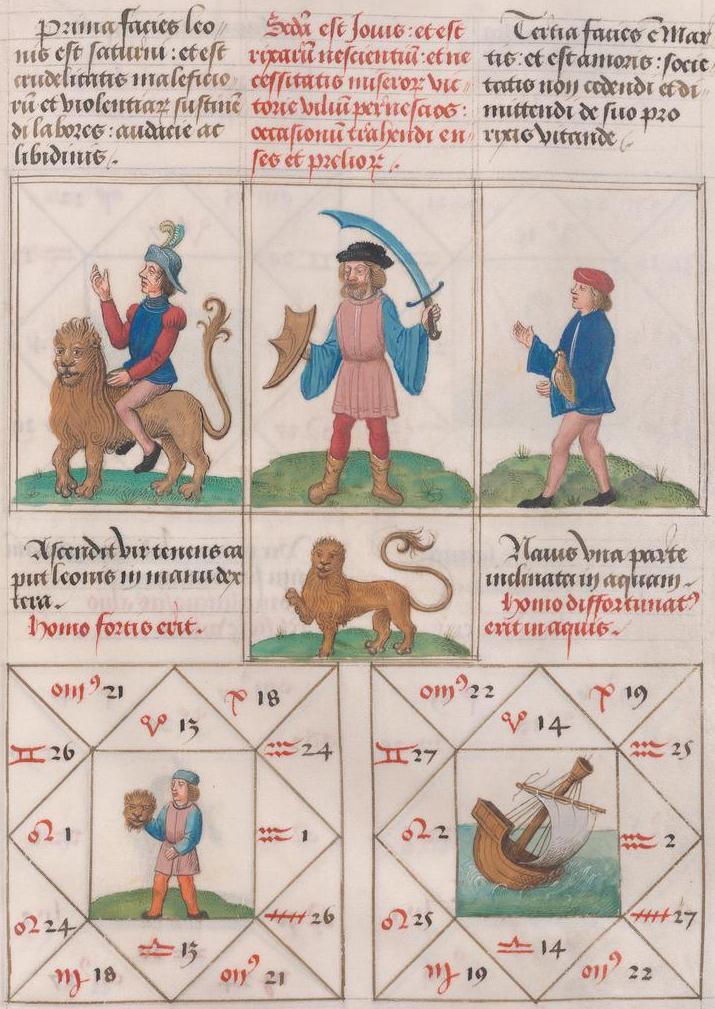 Prima facies leo
nis est saturni : et est
crudelitatis maleficio
rũ et violentiar sustinẽ
di labores : audacie ac
libidinis .
Scdã est Iouis : et est
rixarũ nescientiũ : et ne
cessitatis miseror vic
torie viliũ per nescios :
occasionũ trahendi en
ses et prelior .
Tertia facies ẽ Mar
tis : et est amoris : socie
tatis non cedendi et di
mittendi de suo pro
rixis vitande
Ascendit vir tenens ca
put leonis in manu dex
tera .
homo fortis erit .
Nauis vna parte
inclinata in aquam .
homo diffortunatꝰ
erit in aquis .
21
18
♉ 13
♊ 26
♒ 24
♌ 1
♒ 1
♌ 24
26
♎ 13
♍ 18
21
22
19
♉ 14
♊ 27
♒ 25
♌ 2
♒ 2
♌ 25
27
♎ 14
♍ 19
22